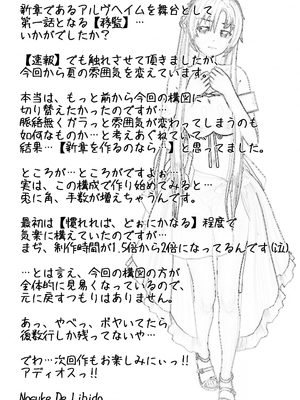 新章であるアルヴヘイムを舞台として
第一話となる【移監】…
いかがでしたか?
【速報】でも触れさせて頂きましたが、
今回から夏の雰囲気を変えています。
本当は、もっと前から今回の構図として
切り替えたかったのですが…
脈絡無くガラっと雰囲気が変わってしまうのも
如何なものか…と考えあぐねていて…
結果…【新章を作るのなら…】と思ってました。
ところが…ところがですよぉ…
実は、この構成で作り始めてみると…
兎に角、手数が増えちゃうんです。
最初は【慣れれば、どぉにかなる】程度で
気楽に構えていたのですが…
まぢ、制作時間が1.5倍から2倍になってるんです(泣)
…とは言え、今回の構図の方が
全体的に見易くなっているので、
元に戻すつもりはありません。
あっ、やべっ、ボヤいてたら
後数行しか残ってないや…
でわ…次回作もお楽しみにぃっ!!
アディオスっ!!
Nosuke De Libido